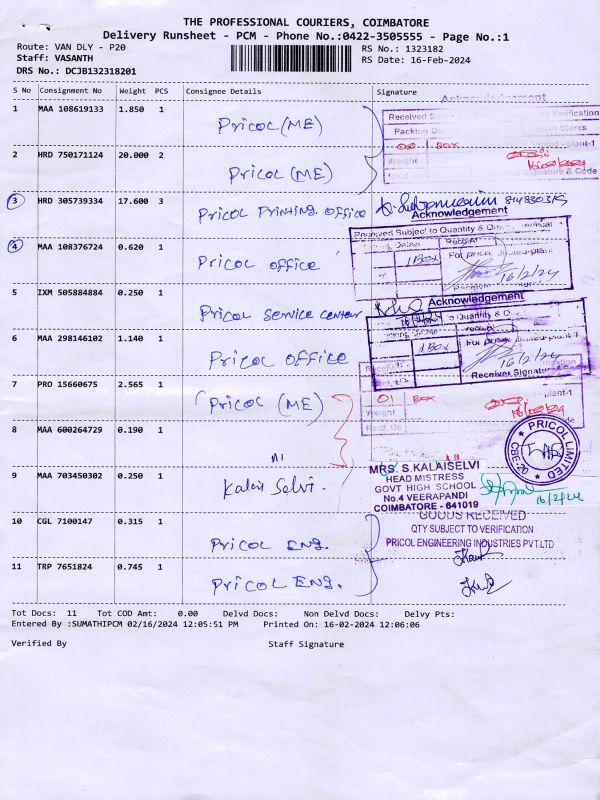 THE PROFESSIONAL COURIERS, COIMBATORE
Delivery Runsheet - PCM - Phone No.:0422-3505555 - Page No.:1
Route: VAN DLY - P20
RS No.: 1323182
Staff: VASANTH
RS Date: 16-Feb-2024
DRS No.: DCJB132318201
S No Consignment No Weight PCS Consignee Details Signature
1 MAA 108619133 1.850 1 Pricol (ME)
Acknowledgement
Verification
Stores
Packing
02 Box
plant-1
Weight
16/02/24
Signature & Code
2 HRD 750171124 20.000 2 Pricol (ME)
3 HRD 305739334 17.600 3 Pricol Printing Office
Acknowledgement
Received Subject to Quantity &
4 MAA 108376724 0.620 1 Pricol office
1 Box
16/2/24
5 IXM 505884884 0.250 1 Pricol Service center
Acknowledgement
& Quality
6 MAA 298146102 1.140 1 Pricol OFFICE
1 Box
16/2/24
Receiver Signature
7 PRO 15660675 2.565 1 Pricol (ME)
01 Box
plant-1
Weight
16/02/24
8 MAA 600264729 0.190 1
PRICOL LIMITED
CBE-20
9 MAA 703450302 0.250 1 Kalai Selvi.
MRS. S.KALAISELVI
HEAD MISTRESS
GOVT HIGH SCHOOL
No.4 VEERAPANDI
COIMBATORE - 641019
16/2/24
GOODS RECEIVED
QTY SUBJECT TO VERIFICATION
PRICOL ENGINEERING INDUSTRIES PVT.LTD
10 CGL 7100147 0.315 1 Pricol ENG.
11 TRP 7651824 0.745 1 Pricol ENG.
Tot Docs: 11 Tot COD Amt: 0.00 Delvd Docs: Non Delvd Docs: Delvy Pts:
Entered By :SUMATHIPCM 02/16/2024 12:05:51 PM Printed On: 16-02-2024 12:06:06
Verified By Staff Signature